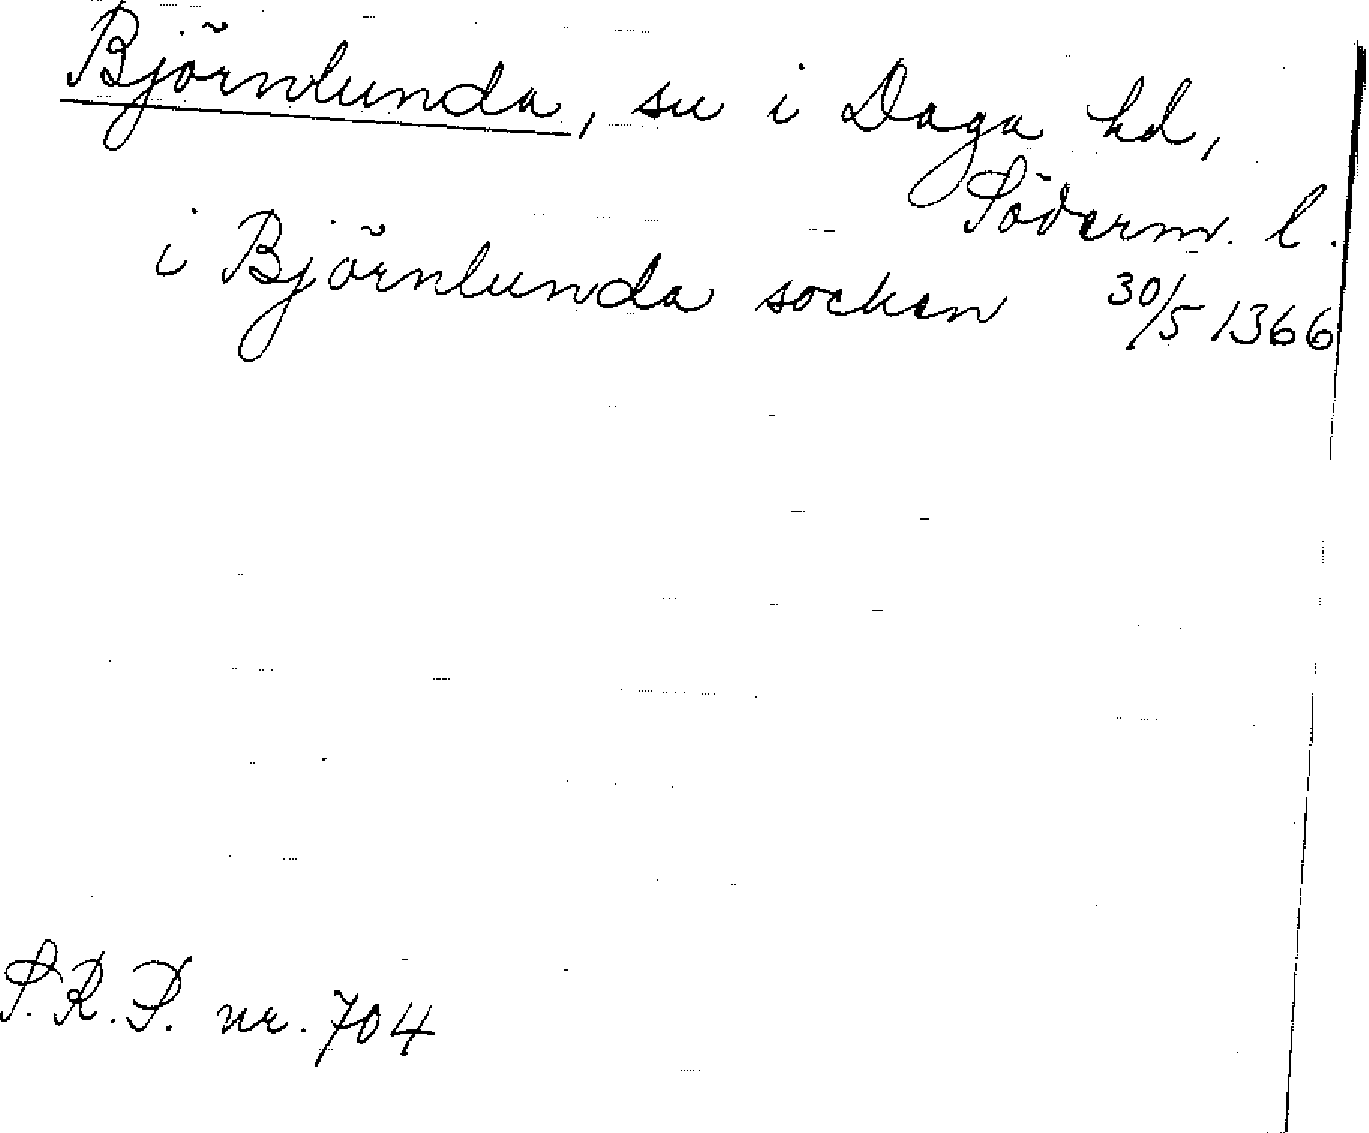 Björnlunda, sn i Daga hd,
Söderm. l.
i Björnlunda socken 30/5 1366
S.R.P. nr. 704